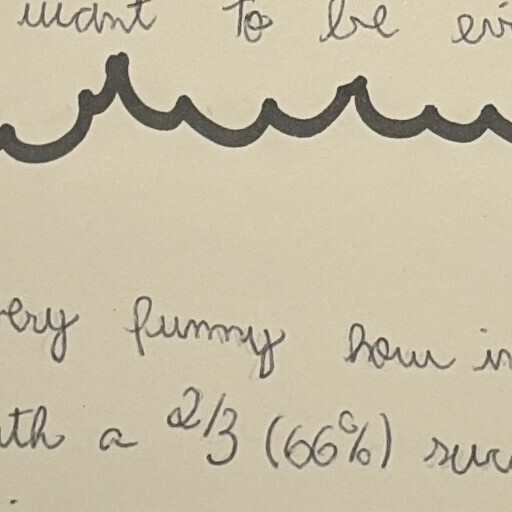 want to be evi
ery funny how in
ith a 2/3 (66%) suc
.